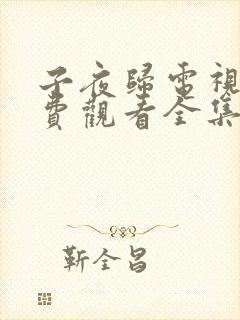 子夜歸電視
費觀看全集
靳全昌